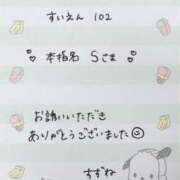 すいえん 102
♡ 本指名 Sさま ♡
お誘いいただき
ありがとうございました☺
すずね